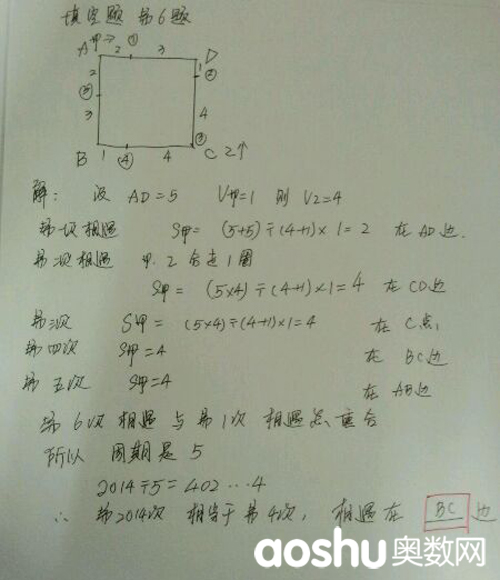 填空题 第6题
A 甲→ 2 ① 3 D
2 1 ②
⑤
3 4
③
B 1 ④ 4 C 乙↑
解: 设 AD=5 V甲=1 则 V乙=4
第一次相遇 S甲= (5+5)÷(4+1)×1=2 在AD边.
第二次相遇 甲.乙合走1圈
S甲= (5×4)÷(4+1)×1=4 在CD边
第三次 S甲=(5×4)÷(4+1)×1=4 在C点,
第四次 S甲=4 在BC边
第五次 S甲=4 在AB边
第6次相遇与第1次相遇点重合
所以 周期是5
2014÷5=402…4
∴ 第2014次 相当于第4次, 相遇在 BC 边
aoshu奥数网